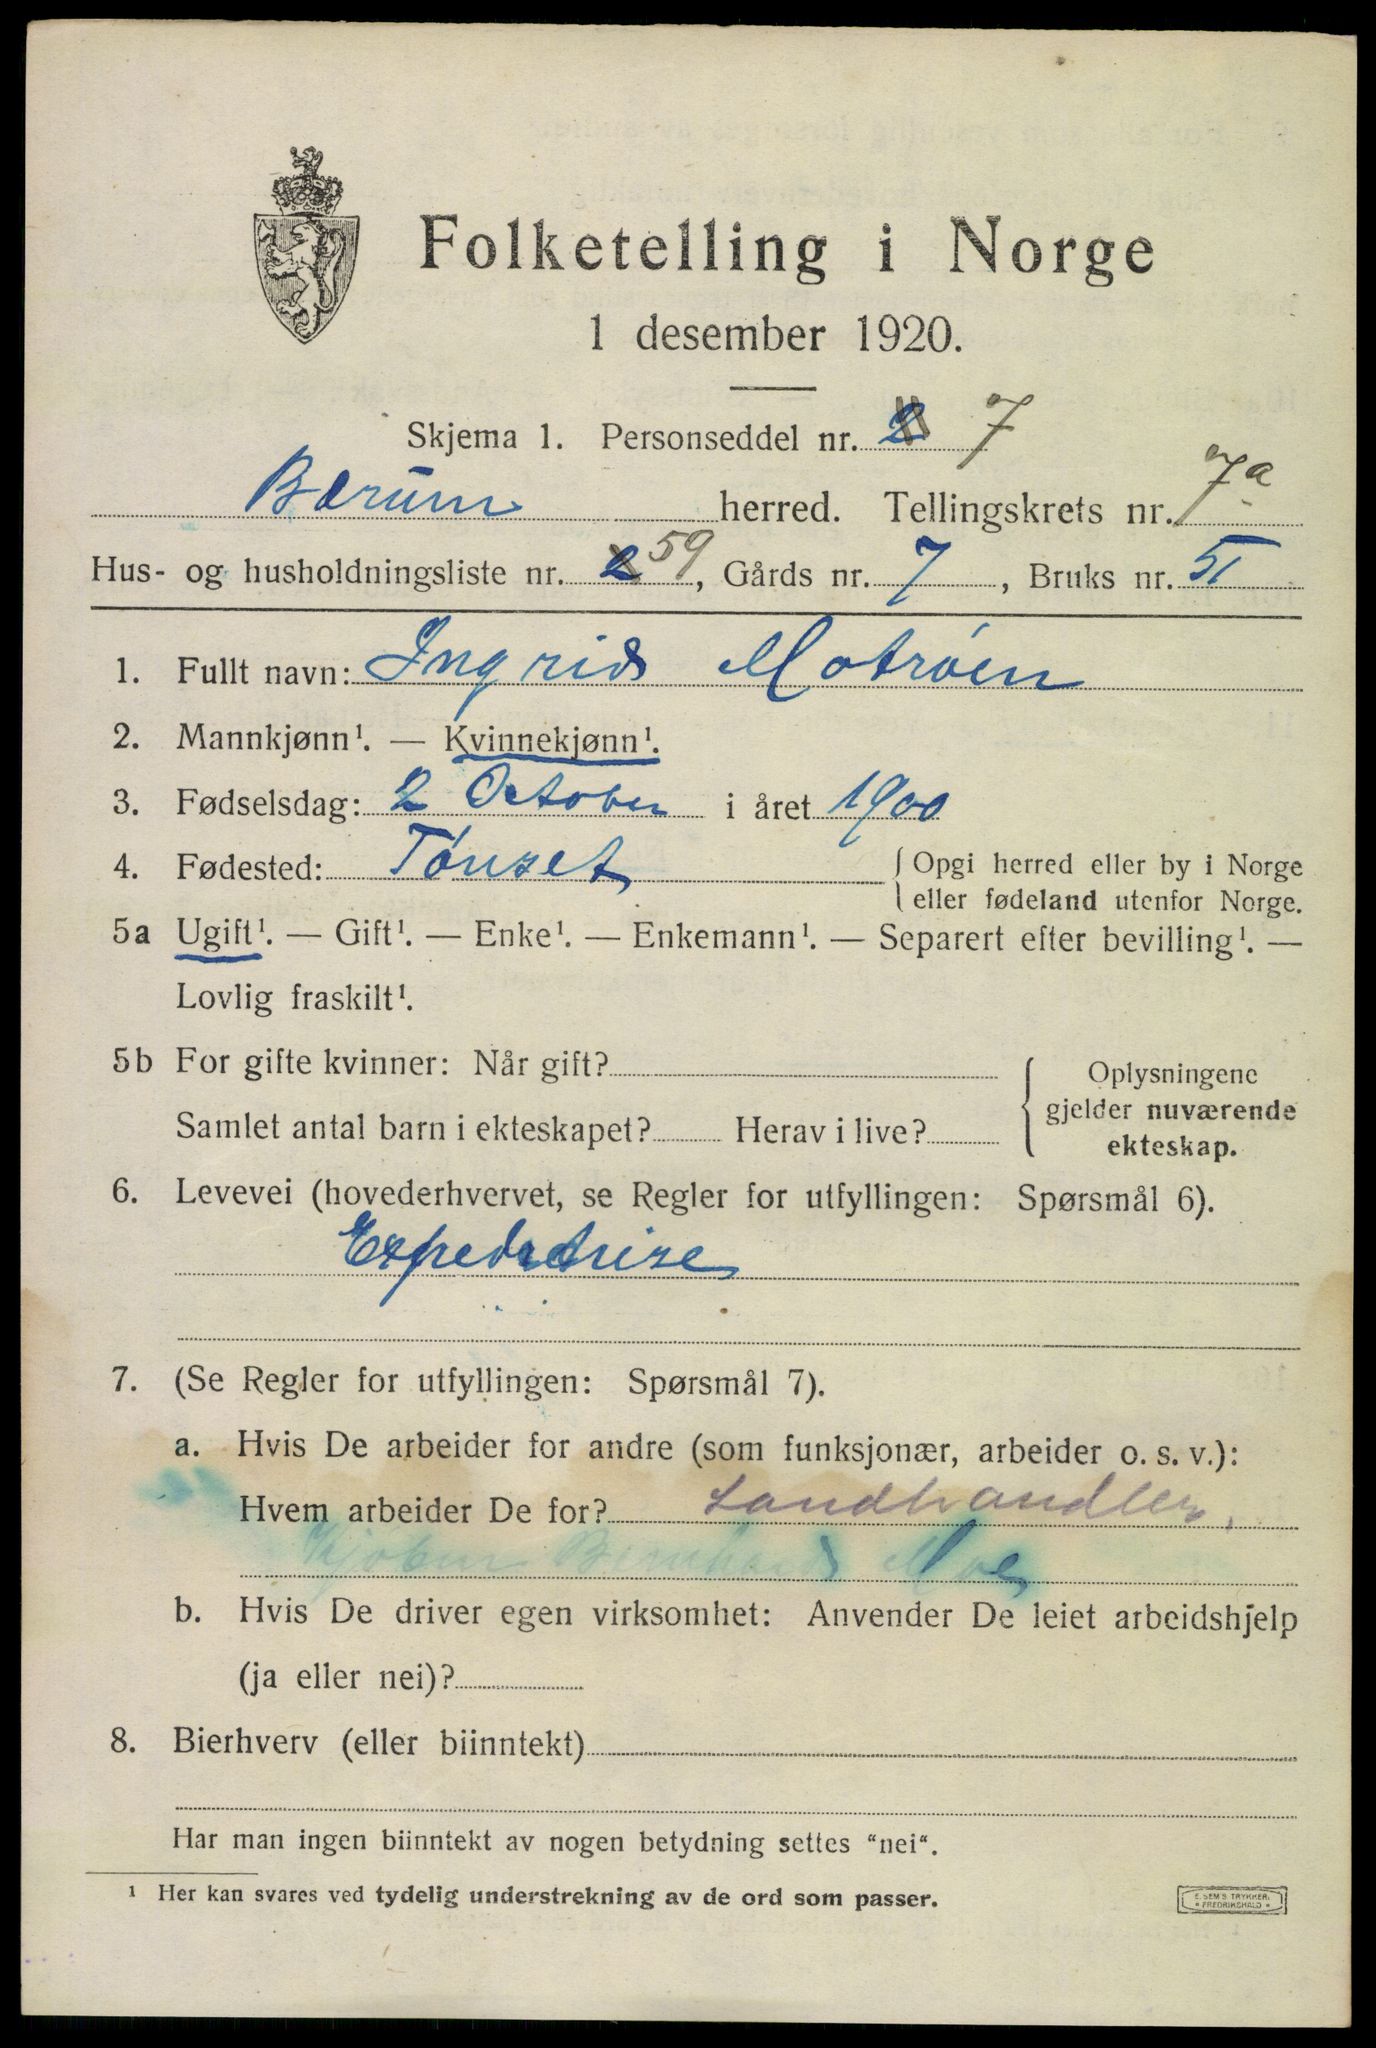 Folketelling i Norge
1 desember 1920.
Skjema 1. Personseddel nr. 2 7
Bærum herred. Tellingskrets nr. 7a
Hus- og husholdningsliste nr. 2 59, Gårds nr. 7, Bruks nr. 51
1. Fullt navn: Ingrid Motrøen
2. Mannkjønn¹. — Kvinnekjønn¹.
3. Fødselsdag: 2 October i året 1900
4. Fødested: Tønset { Opgi herred eller by i Norge
eller fødeland utenfor Norge.
5a Ugift¹. — Gift¹. — Enke¹. — Enkemann¹. — Separert efter bevilling¹. —
Lovlig fraskilt¹.
5b For gifte kvinner: Når gift? Oplysningene
gjelder nuværende
Samlet antal barn i ekteskapet? Herav i live?
ekteskap.
6. Levevei (hovederhvervet, se Regler for utfyllingen: Spørsmål 6).
Expeditrise
7. (Se Regler for utfyllingen: Spørsmål 7).
a. Hvis De arbeider for andre (som funksjonær, arbeider o. s. v.):
Hvem arbeider De for? Landhandler,
Bernhard Moe
b. Hvis De driver egen virksomhet: Anvender De leiet arbeidshjelp
(ja eller nei)?
8. Bierhverv (eller biinntekt)
Har man ingen biinntekt av nogen betydning settes "nei".
¹ Her kan svares ved tydelig understrekning av de ord som passer.
E. SEM'S TRYKKERI
* FREDRIKSHALD *